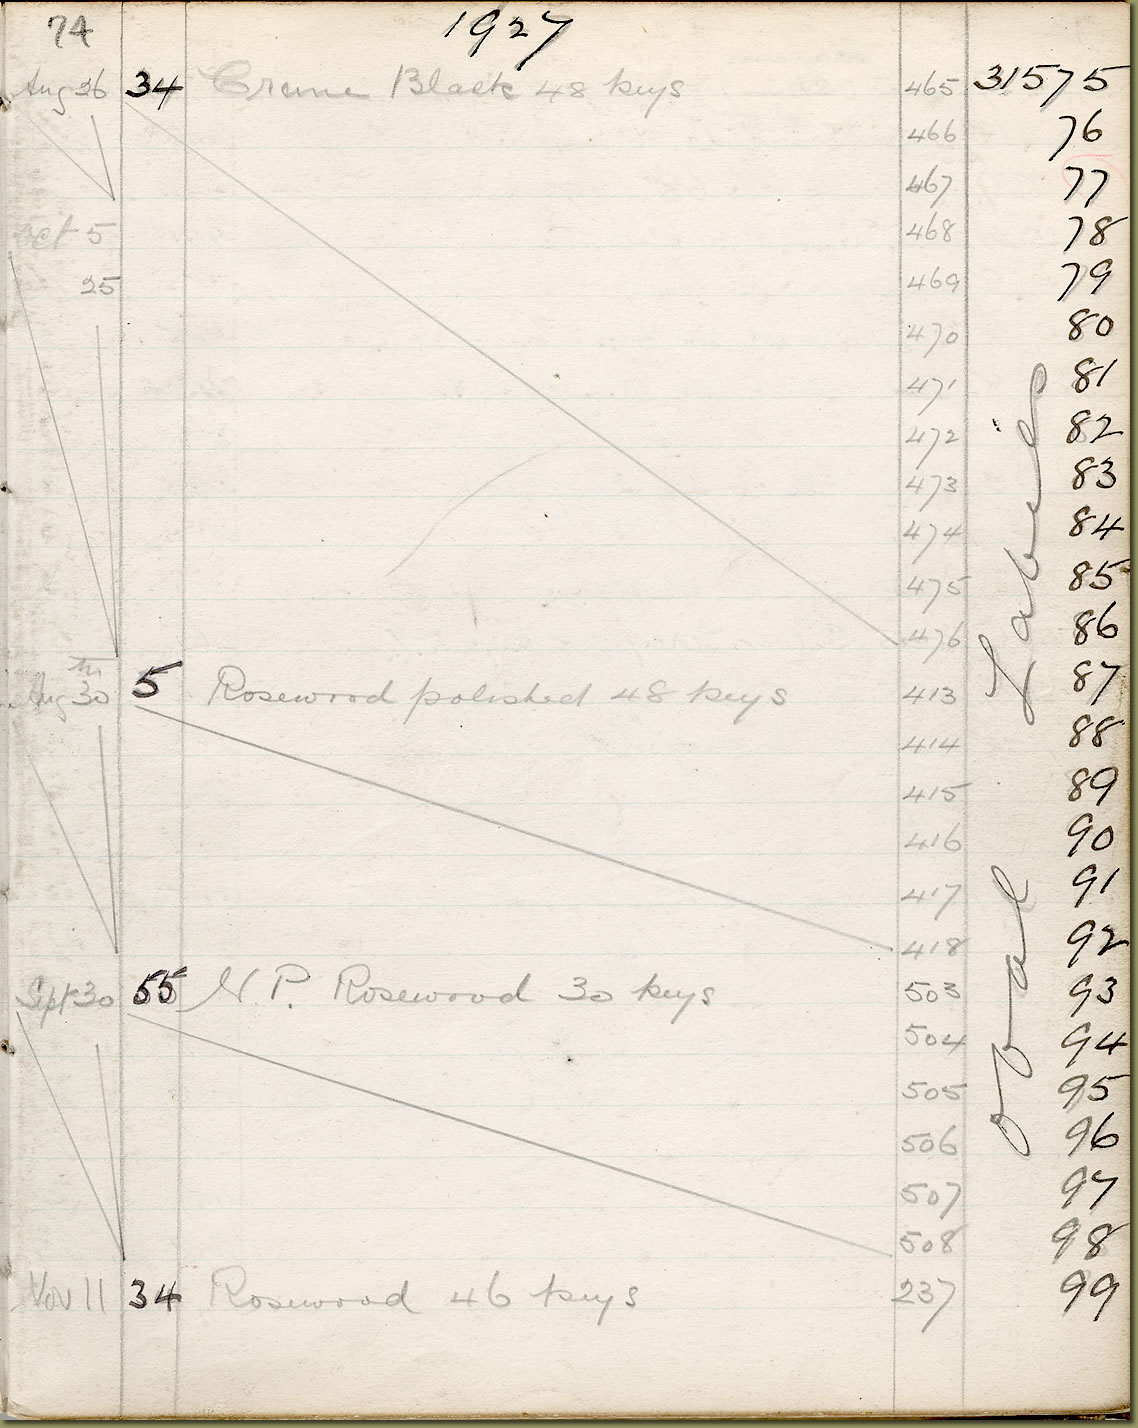 74 1927
Aug 26 34 Crane Black 48 keys 465 31575
466 76
467 77
Oct 5 468 78
25 469 79
470 80
471 81
472 82
473 83
474 84
475 85
476 86
Aug 30th 5 Rosewood polished 48 keys 413 87
414 88
415 89
416 90
417 91
418 92
Sept 30 55 N.P. Rosewood 30 keys 503 93
504 94
505 95
506 96
507 97
508 98
Nov 11 34 Rosewood 46 keys 237 99
Oval Labels